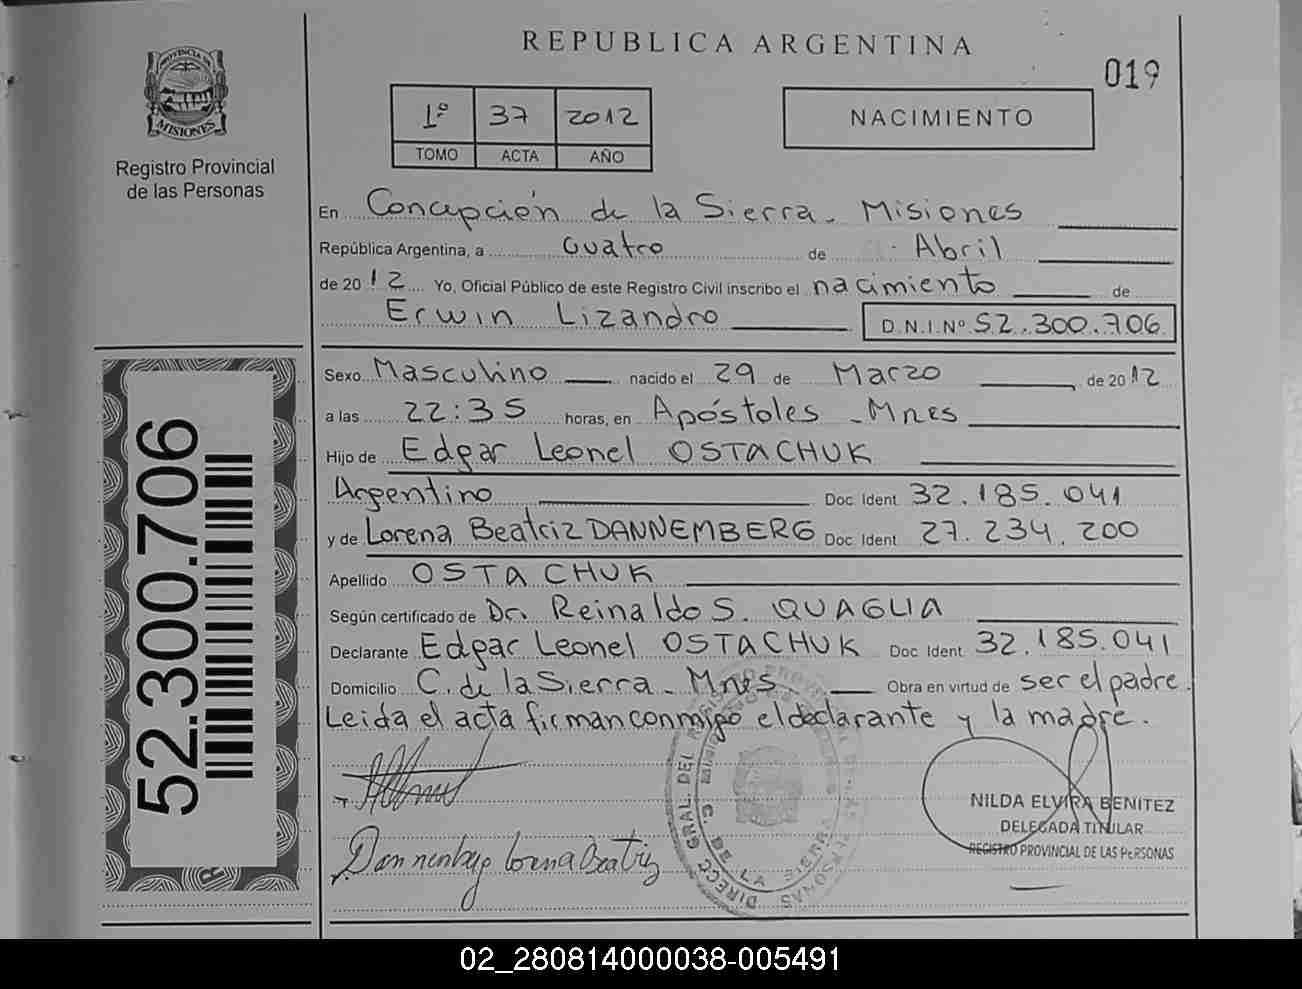 REPUBLICA ARGENTINA
019
PROVINCIA DE
MISIONES
Registro Provincial
de las Personas
1º 37 2012
TOMO ACTA AÑO
NACIMIENTO
En Concepción de la Sierra - Misiones
República Argentina, a cuatro de Abril
de 2012 Yo, Oficial Público de este Registro Civil inscribo el nacimiento de
Erwin Lizandro D.N.I.Nº 52.300.706
Sexo Masculino nacido el 29 de Marzo de 2012
a las 22:35 horas, en Apóstoles - Mnes
Hijo de Edgar Leonel OSTACHUK
Argentino Doc. Ident 32.185.041
y de Lorena Beatriz DANNEMBERG Doc. Ident 27.234.200
Apellido OSTACHUK
Según certificado de Dr. Reinaldo S. QUAGLIA
Declarante Edgar Leonel OSTACHUK Doc. Ident 32.185.041
Domicilio C. de la Sierra - Mnes - Obra en virtud de ser el padre.
Leida el acta firman conmigo el declarante y la madre.
52.300.706
Dannenberg Lorena Beatriz
DIRECC. GRAL. DEL REGISTRO PROV. DE LAS PERSONAS
C. DE LA SIERRA
NILDA ELVIRA BENITEZ
DELEGADA TITULAR
REGISTRO PROVINCIAL DE LAS PERSONAS
02_280814000038-005491